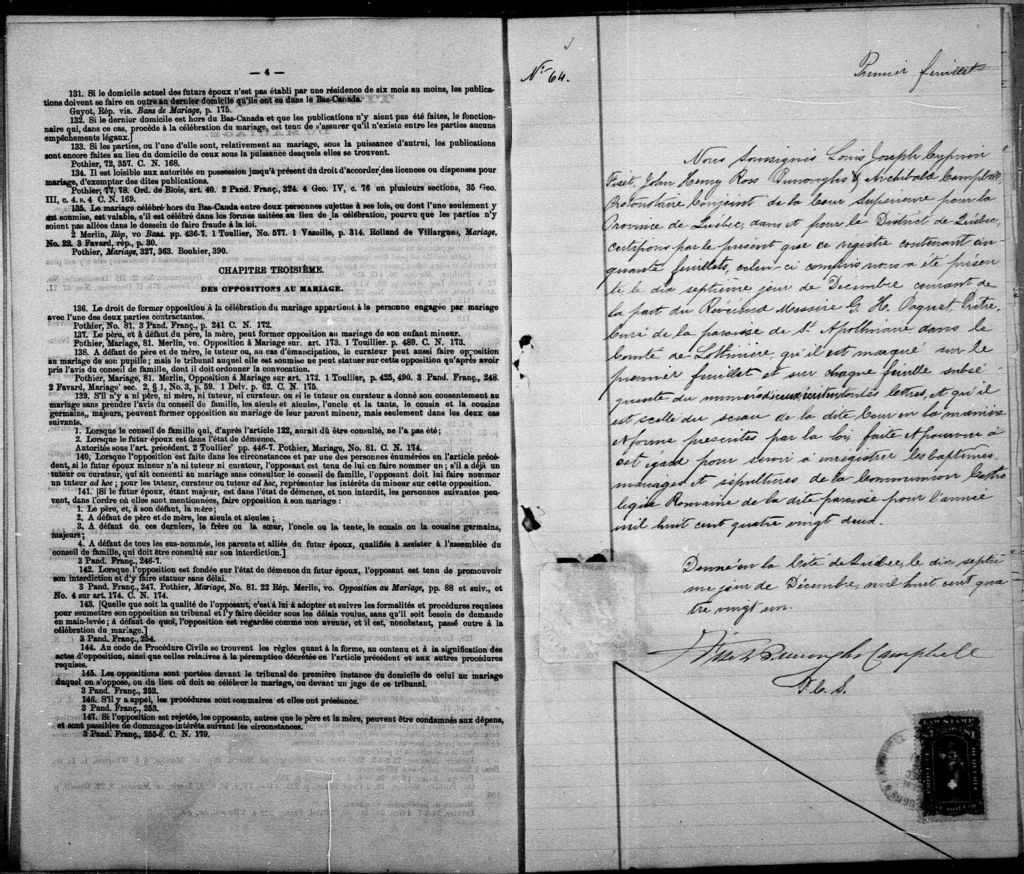 — 4 —
131. Si le domicile actuel des futurs époux n'est pas établi par une résidence de six mois au moins, les publica-
tions doivent se faire en outre au dernier domicile qu'ils ont eu dans le Bas-Canada.
Guyot, Rép. vis. Bans de Mariage, p. 175.
132. Si le dernier domicile est hors du Bas-Canada et que les publications n'y aient pas été faites, le fonction-
naire qui, dans ce cas, procède à la célébration du mariage, est tenu de s'assurer qu'il n'existe entre les parties aucuns
empêchements légaux.]
133. Si les parties, ou l'une d'elle sont, relativement au mariage, sous la puissance d'autrui, les publications
sont encore faites au lieu du domicile de ceux sous la puissance desquels elles se trouvent.
Pothier, 72, 357. C. N. 168.
134. Il est loisible aux autorités en possession jusqu'à présent du droit d'accorder des licences ou dispenses pour
mariage, d'exempter des dites publications.
Pothier, 77, 78. Ord. de Blois, art. 40. 2 Pand. Franç., 324. 4 Geo. IV, c. 76 en plusieurs sections, 35 Geo.
III, c. 4. s. 4 C. N. 169.
135. Le mariage célébré hors du Bas-Canda entre deux personnes sujettes à ses lois, ou dont l'une seulement y
est soumise, est valable, s'il est célébré dans les formes usitées au lieu de la célébration, pourvu que les parties n'y
soient pas allées dans le dessein de faire fraude à la loi.
2 Merlin, Rép, vo Bans. pp. 436-7. 1 Toullier, No. 577. 1 Vazeille, p. 314. Rolland de Villargues, Mariage,
No. 22. 3 Favard, rép, p. 30.
Pothier, Mariage, 327, 363. Bouhier, 390.
CHAPITRE TROISIÈME.
DES OPPOSITIONS AU MARIAGE.
136. Le droit de former opposition à la célébration du mariage appartient à la personne engagée par mariage
avec l'une des deux parties contractantes.
Pothier, No. 81. 3 Pand. Franç., p. 241 C. N. 172.
137. Le père, et à défaut du père, la mère, peut former opposition au mariage de son enfant mineur.
Pothier, Mariage, 81. Merlin, vo. Opposition à Mariage sur. art. 173. 1 Touillier. p. 489. C. N. 173.
138. A défaut de père et de mère, le tuteur ou, au cas d'émancipation, le curateur peut aussi faire opposition
au mariage de son pupille; mais le tribunal auquel elle est soumise ne peut statuer sur cette opposition qu'après avoir
pris l'avis du conseil de famille, dont il doit ordonner la convocation.
Pothier, Mariage, 81. Merlin, Opposition à Mariage sur art. 172. 1 Toullier, p. 425, 490. 3 Pand. Franç., 248.
2 Favard, Mariage sec. 2, § 1, No. 3, p. 59. 1 Delv. p. 62. C. N. 175.
139. S'il n'y a ni père, ni mère, ni tuteur, ni curateur. ou si le tuteur ou curateur a donné son consentement au
mariage sans prendre l'avis du conseil de famille, les aieuls et aieules, l'oncle et la tante, le cousin et la cousine
germains, majeurs, peuvent former opposition au mariage de leur parent mineur, mais seulement dans les deux cas
suivants.
1. Lorsque le conseil de famille qui, d'après l'article 122, aurait dû être consulté, ne l'a pas été;
2. Lorsque le futur époux est dans l'état de démence.
Autorités sous l'art. précédent. 2 Toullier pp. 446-7. Pothier, Mariage, No. 81. C. N. 174.
140. Lorsque l'opposition est faite dans les circonstances et par une des personnes énumérées en l'article précé-
dent, si le futur époux mineur n'a ni tuteur ni curateur, l'opposant est tenu de lui en faire nommer un; s'il a déjà un
tuteur ou curateur, qui ait consenti au mariage sans consulter le conseil de famille, l'opposant doit lui faire nommer
un tuteur ad hoc; pour les tuteur, curateur ou tuteur ad hoc, représenter les intérêts du mineur sur cette opposition.
141. [Si le futur époux, étant majeur, est dans l'état de démence, et non interdit, les personnes suivantes peu-
vent, dans l'ordre où elles sont mentionnées, faire opposition à son mariage:
1. Le père, et, à son défaut, la mère;
2. A défaut de père et de mère, les aieuls et aieules;
3. A défaut de ces derniers, le frère ou la sœur, l'oncle ou la tente, le cousin ou la cousine germains,
majeurs;
4. A défaut de tous les sus-nommés, les parents et alliés du futur époux, qualifiés à assister à l'assemblée du
conseil de famille, qui doit être consulté sur son interdiction.]
3 Pand. Franç., 246-7.
142. Lorsque l'opposition est fondée sur l'état de démence du futur époux, l'opposant est tenu de promouvoir
son interdiction et d'y faire statuer sans délai.
3 Pand. Franç., 247. Pothier, Mariage, No. 81. 22 Rép. Merlin, vo. Opposition au Mariage, pp. 88 et suiv., et
No. 4 sur art. 174. C. N. 174.
143. [Quelle que soit la qualité de l'opposant, c'est à lui à adopter et suivre les formalités et procédures requises
pour soumettre son opposition au tribunal et l'y faire décider sous les délais voulus, sans qu'il soit besoin de demande
en main-levée; à défaut de quoi, l'opposition est regardée comme non avenue, et il est, nonobstant, passé outre à la
célébration du mariage.]
3 Pand. Franç., 254.
144. Au code de Procédure Civile se trouvent les règles quant à la forme, au contenu et à la signification des
actes d'opposition, ainsi que celles relatives à la péremption décrétée en l'article précédent et aux autres procédures
requises.
145. Les oppositions sont portées devant le tribunal de première instance du domicile de celui au mariage
duquel on s'oppose, ou du lieu où doit se célébrer le mariage, ou devant un juge de ce tribunal.
3 Pand. Franç., 253.
146. S'il y a appel, les procédures sont sommaires et elles ont préséance.
3 Pand. Franç., 253.
147. Si l'opposition est rejetée, les opposants, autres que le père et la mère, peuvent être condamnés aux dépens,
et sont passibles de dommages-intérêts suivant les circonstances.
3 Pand. Franç., 255-6. C. N. 179.
No 64.
Premier feuillet
Nous Soussignés Louis Joseph Cyprien
Fiset, John Henry Ross Burroughs & Archibald Campbell
Protonotaire Conjoint de la Cour Supérieure pour la
Province de Québec, dans et pour le District de Québec,
certifions par le présent que ce registre contenant cin-
quante feuillets, celui-ci compris nous a été présen
té le dix septième jour de Décembre courant de
la part du Révérend Messire G. H. Paquet Prêtre,
Curé de la paroisse de St Apollinaire dans le
Comté de Lotbinière, qu'il est marqué sur le
premier feuillet et sur chaque feuille subsé-
quente du numéro écrit en toutes lettres, et qu'il
est scellé du sceau de la dite Cour en la manière
et forme prescrites par la loi, faite et pourvue à
cet égard pour servir à enregistrer les baptêmes,
mariages et sépultures de la Communion Catho
lique Romaine de la dite paroisse pour l'année
mil huit cent quatre vingt deux.
Donné en la Cité de Québec, le dix septiè
me jour de Décembre, mil huit cent qua
tre vingt un.
Fiset Burroughs Campbell
P. C. S.
LAW STAMP